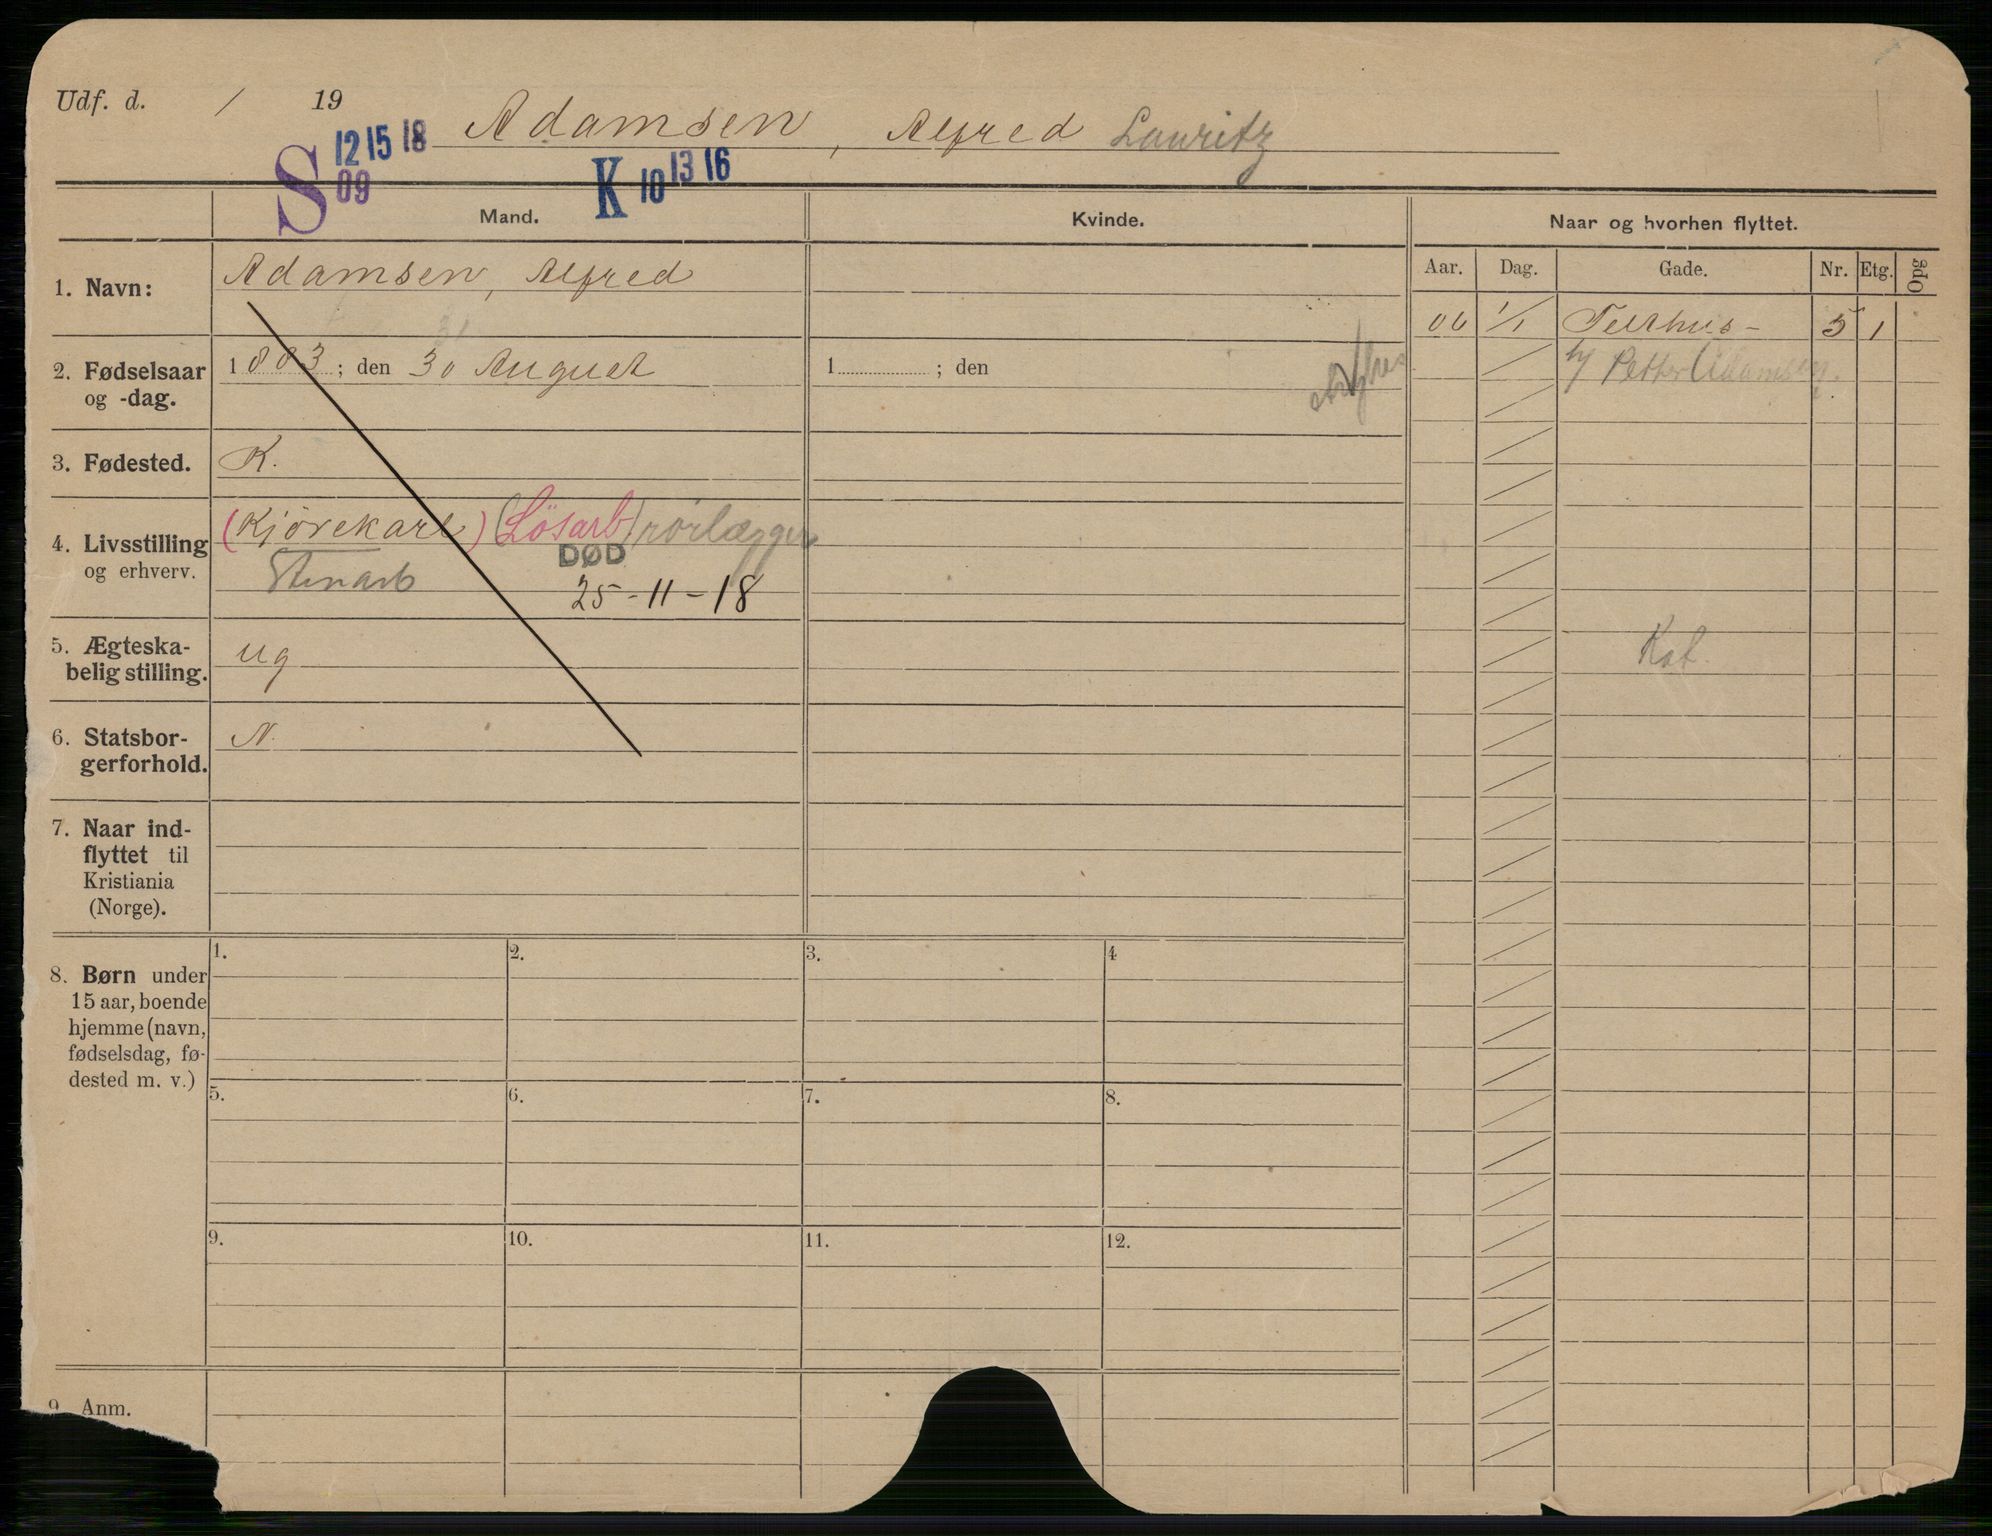 Udf. d. / 19
Adamsen, Alfred Lauritz
S 12 15 18
09
K 10 13 16
Mand.
Kvinde.
Naar og hvorhen flyttet.
Aar. Dag. Gade. Nr. Etg. Opg
1. Navn: Adamsen, Alfred
06 1/1 Telthus- 5 1
h/ Petter Adamsen.
2. Fødselsaar
og -dag.
1883; den 30 August
31
1 ; den
3. Fødested. K.
4. Livsstilling
og erhverv.
(Kjørekarl) (Løsarb) rørlægger
Stenarb
DØD
25-11-18
5. Ægteska-
belig stilling.
ug
Kat.
6. Statsbor-
gerforhold.
N.
7. Naar ind-
flyttet til
Kristiania
(Norge).
8. Børn under
15 aar, boende
hjemme (navn,
fødselsdag, fø-
dested m. v.)
1. 2. 3. 4
5. 6. 7. 8.
9. 10. 11. 12.
9. Anm.